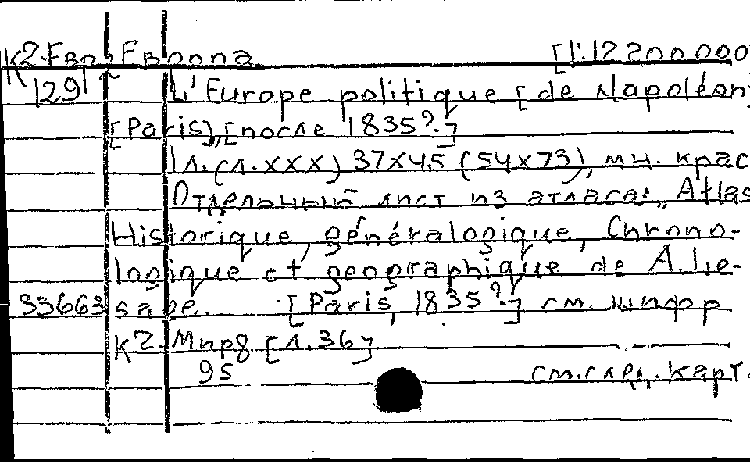 К2-Евр Европа [1:12 200 000
129 L'Europe politique [de Napoléon
[Paris], [после 1835?.]
1 л. (л. XXX) 37х45 (54х73), мн. крас
Отдельный лист из атласа: „Atlas
Historique, généralogique, Chrono-
logique et geographique de A. Le-
33663 sage. [Paris, 1835?.] см. шифр
К2-Мир8 [л. 36]
95 см. след. карт.